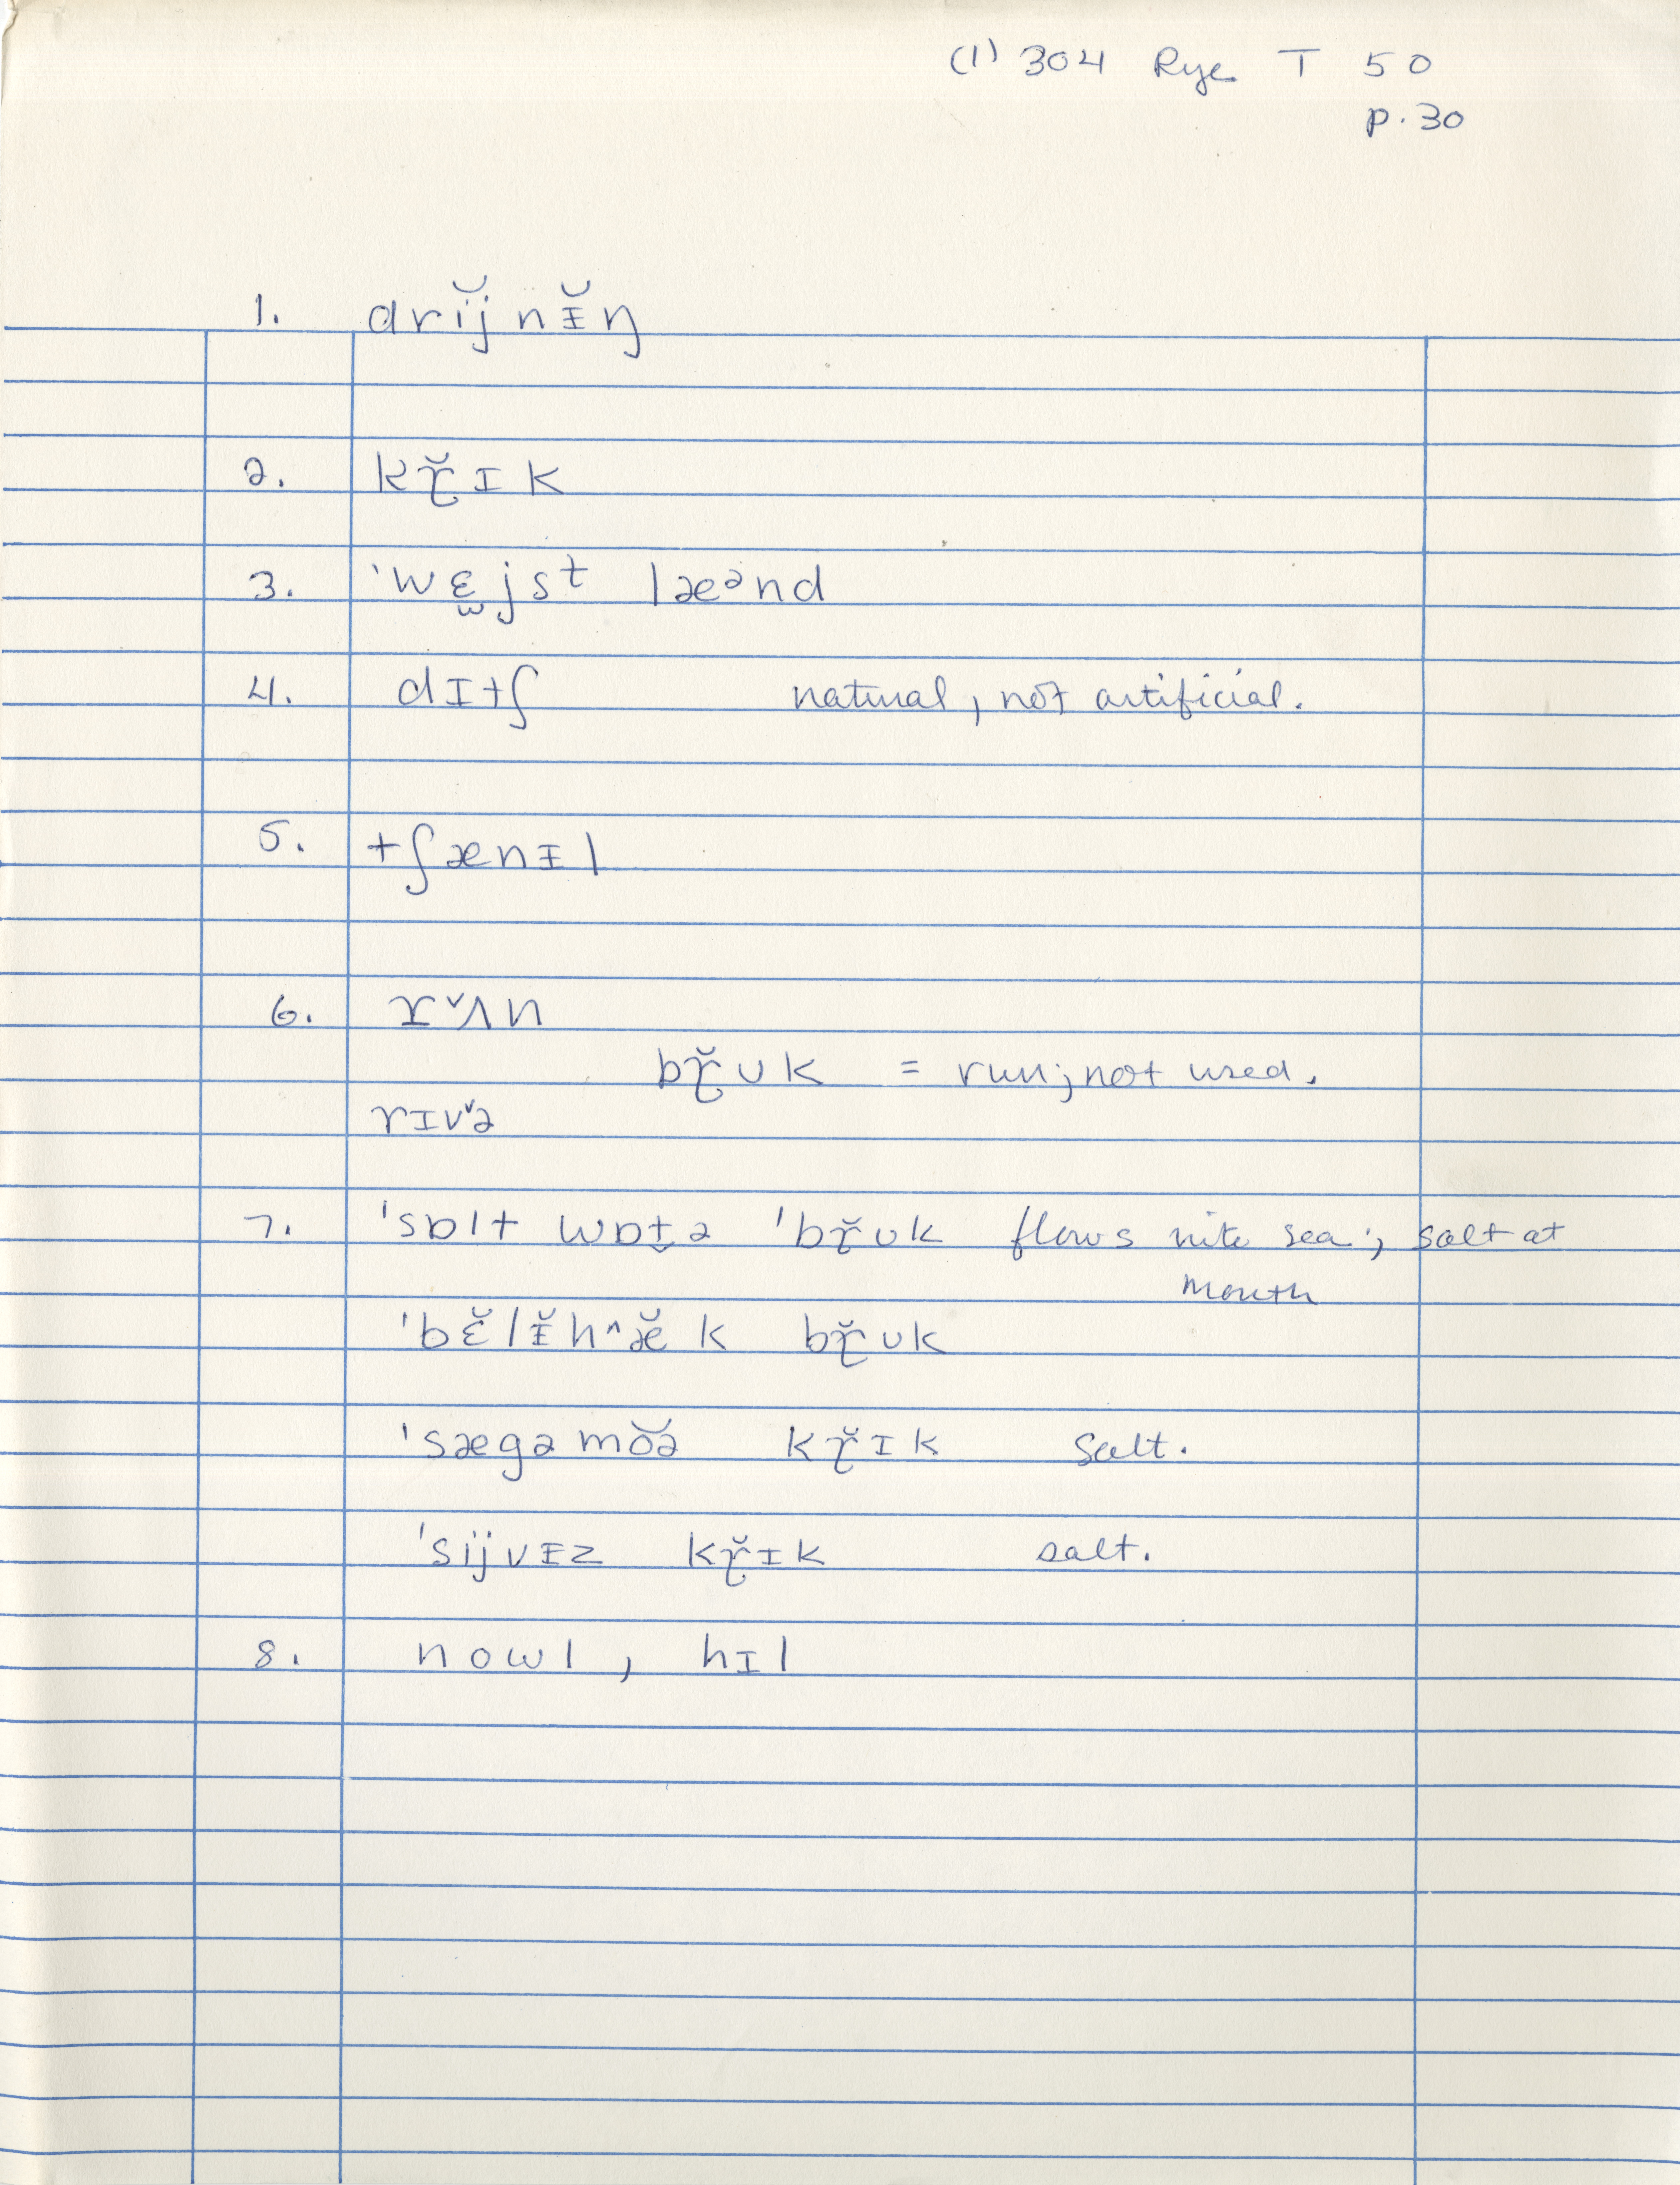 (1) 304 Rye T 50
p. 30
1. drĭj nɪ̆ŋ
2. kɽ̆ɪk
3. 'wɛ̯jsᵗ læᵊnd
4. dɪtʃ natural, not artificial.
5. tʃænɪl
6. rˇʌn
bɽ̆ʊk = run; not used.
rɪvˇə
7. 'sɒlt wɒt̬ə 'bɽ̆ʊk flows into sea; salt at
mouth
'bɛ̆lɪ̆h^æ̆k bɽ̆ʊk
'sægəmŏə kɽ̆ɪk Salt.
'sijvɪz kɽ̆ɪk salt.
8. nowl, hɪl